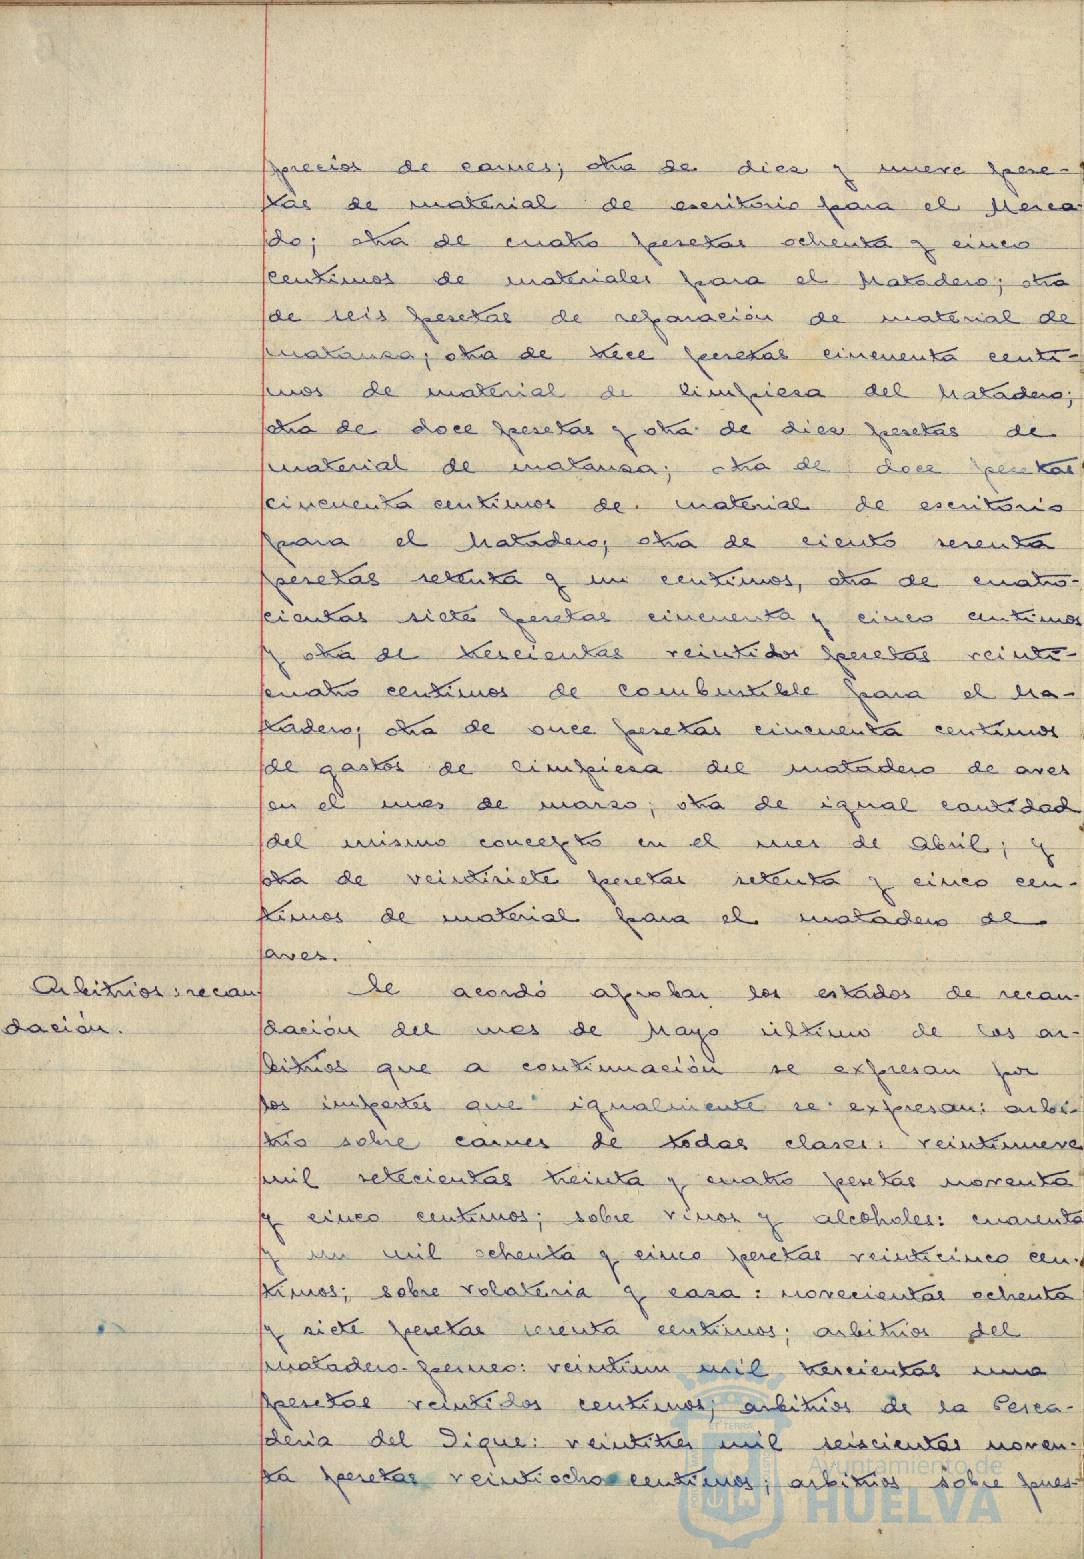 precios de carnes; otra de diez y nueve pese-
tas de material de escritorio para el Merca-
do; otra de cuatro pesetas ochenta y cinco
centimos de materiales para el Matadero; otra
de seis pesetas de reparación de material de
matansa; otra de trece pesetas cincuenta centi-
mos de material de limpiesa del Matadero;
otra de doce pesetas y otra de diez pesetas de
material de matansa; otra de doce pesetas
cincuenta centimos de material de escritorio
para el Matadero; otra de ciento sesenta
pesetas setenta y un centimos, otra de cuatro-
cientas siete pesetas cincuenta y cinco centimos
y otra de trescientas veintidos pesetas veinti-
cuatro centimos de combustible para el Ma-
tadero; otra de once pesetas cincuenta centimos
de gastos de limpiesa del matadero de aves
en el mes de marzo; otra de igual cantidad
del mismo concepto en el mes de Abril; y
otra de veintisiete pesetas setenta y cinco cen-
timos de material para el matadero de
aves.
Arbitrios: recau
dación.
Se acordó aprobar los estados de recau-
dación del mes de Mayo último de los ar-
bitrios que a continuación se expresan por
los importes que igualmente se expresan: arbi-
trio sobre carnes de todas clases: veintinueve
mil setecientas treinta y cuatro pesetas noventa
y cinco centimos; sobre vinos y alcoholes: cuarenta
y un mil ochenta y cinco pesetas veinticinco cen-
timos; sobre volateria y caza: novecientas ochenta
y siete pesetas sesenta centimos; arbitrios del
matadero-permeo: veintiun mil trescientas una
pesetas veintidos centimos; arbitrios de la Pesca-
deria del Dique: veintitres mil seiscientas noven-
ta pesetas veintiocho centimos; arbitrios sobre pues-
Ayuntamiento de
HUELVA